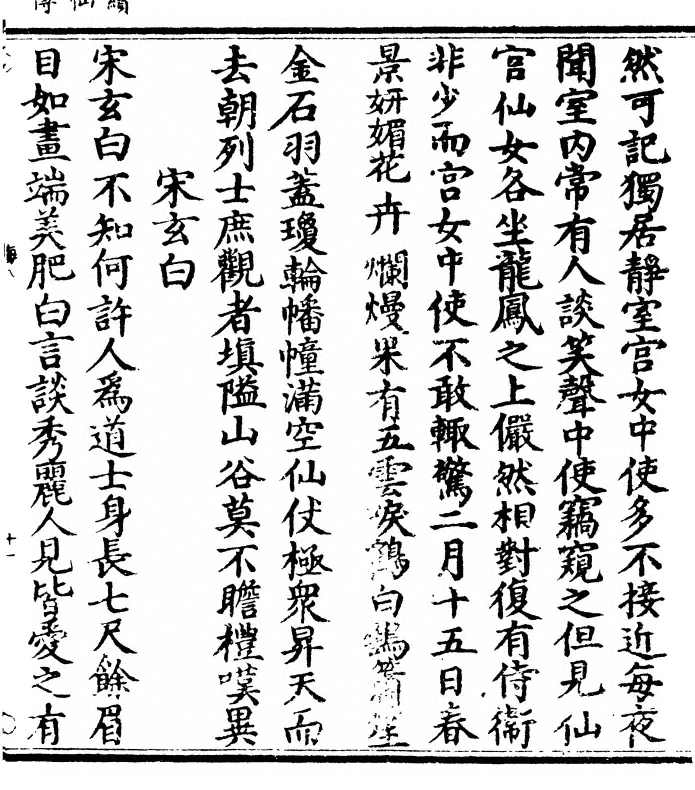 然可記獨居靜室宫女中使多不接近每夜
聞室内常有人談笑聲中使竊窺之但見仙
官仙女各坐龍鳳之上儼然相對復有侍衛
非少而宫女中使不敢輙驚二月十五日春
景妍媚花卉爛熳果有五雲唳鶴白鵠簫笙
金石羽蓋瓊輪幡幢滿空仙仗極衆昇天而
去朝列士庶觀者塡隘山谷莫不瞻禮嘆異
宋玄白
宋玄白不知何許人爲道士身長七尺餘眉
目如畫端美肥白言談秀麗人見皆愛之有
十一